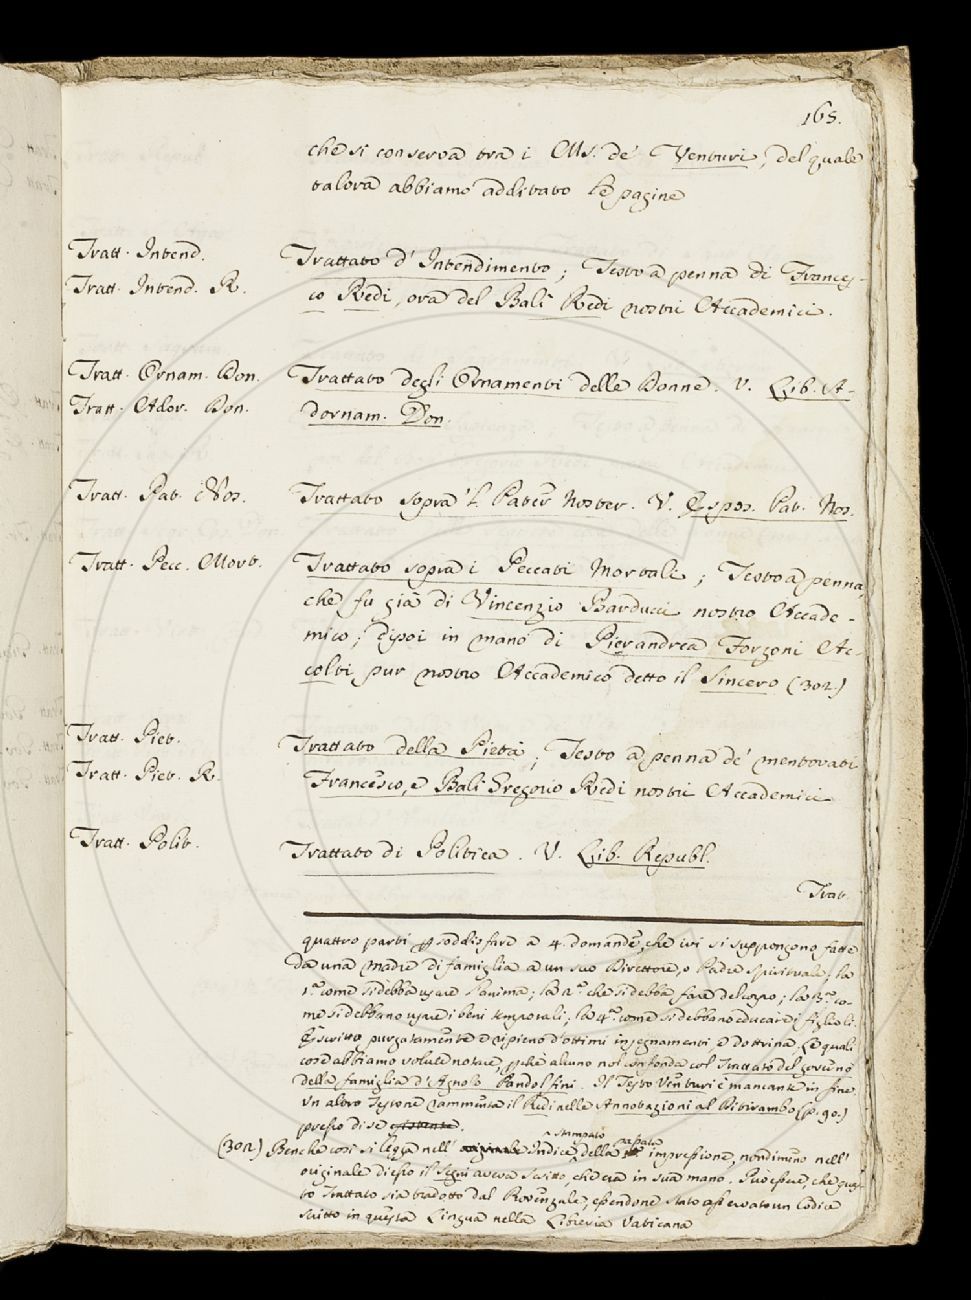 165.
che si conserva tra i Ms. de' Venturi, del quale
talora abbiamo additato le pagine
Tratt. Intend.
Tratt. Intend. R.
Trattato d'Intendimento; Testo a penna di Frances-
co Redi, ora del Balì Redi nostri Accademici.
Tratt. Ornam. Don.
Tratt. Ador. Don.
Trattato degli Ornamenti delle Donne. V. Lib. A-
dornam. Don.
Tratt. Pat. Nos.
Trattato sopra 'l Pater Noster. V. Espos. Pat. Nos.
Tratt. Pecc. Mort.
Trattato sopra i Peccati Mortali; Testo a penna,
che fu già di Vincenzio Barducci nostro Accade-
mico; dipoi in mano di Pierandrea Forzoni Ac-
colti pur nostro Accademico detto il Sincero (302.)
Tratt. Piet.
Tratt. Piet. R.
Trattato della Pietà; Testo a penna de' mentovati
Francesco, e Balì Gregorio Redi nostri Accademici
Tratt. Polit.
Trattato di Politica. V. Lib. Republ.
Trat.
quattro parti p soddisfare a 4. domande, che ivi si suppongono fatte
da una Madre di famiglia a un suo Direttore, o Padre spirituale; la
1.ª come si debba usare l'anima; la 2.ª che si debba fare del corpo; la 3.ª co-
me si debbano usare i beni temporali; la 4.ª come si debbano educare i figliuoli.
È scritto purgatamente e ripieno d'ottimi insegnamenti e dottrina, le quali
cose abbiamo volute notare, pchè alcuno nol confonda col Trattato del governo
della famiglia d'Agnolo Pandolfini. Il Testo Venturi è mancante in fine.
Un altro Testone rammenta il Redi nelle Annotazioni al Ditirambo (p. 90.)
presso di se esistente.
(302) Benche così si legga nell' originale Indice stampato della passata impressione, nondimeno nell'
originale d'esso il Segni aveva scritto, che era in sua mano. Può essere, che ques-
to Trattato sia tradotto dal Provenzale, essendone stato osservato un Codice
scritto in questa Lingua nella Libreria Vaticana